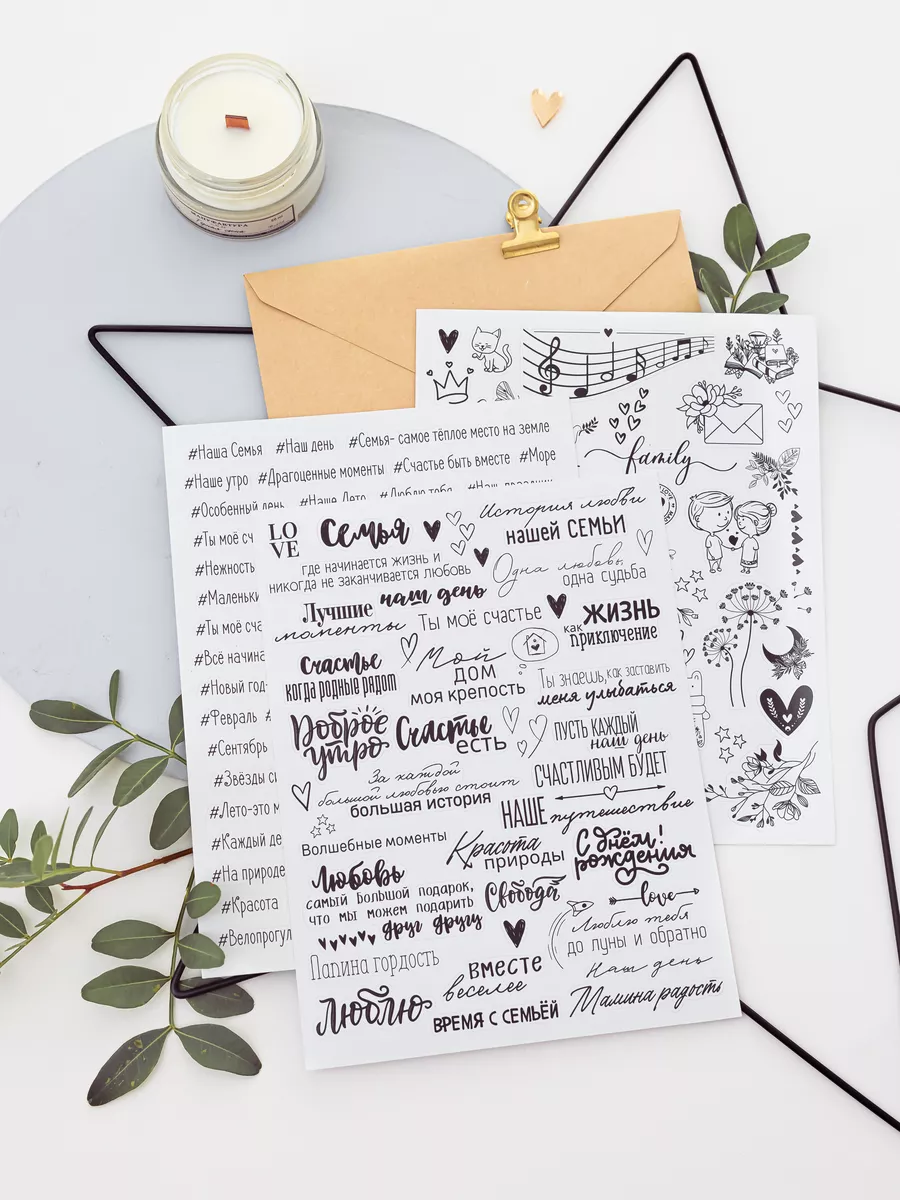 МАНУФАКТУРА
family
#Наша Семья #Наш день #Семья- самое тёплое место на земле
#Наше утро #Драгоценные моменты #Счастье быть вместе #Море
#Особенный день #Наше Лето #Люблю тебя #Наш праздник
#Ты моё сч
#Нежность
#Маленьки
#Ты моё сча
#Всё начина
#Новый год
#Февраль #
#Сентябрь
#Звёзды си
#Лето-это м
#Каждый де
#На природе
#Красота
#Велопрогул
LOVE
Семья
История любви
нашей СЕМЬИ
где начинается жизнь и
никогда не заканчивается любовь
Одна любовь,
одна судьба
Лучшие
моменты
наш день
Ты моё счастье
ЖИЗНЬ
как приключение
Счастье
когда родные рядом
Мой
дом
моя крепость
Ты знаешь, как заставить
меня улыбаться
Доброе
утро
Счастье
есть
ПУСТЬ КАЖДЫЙ
наш день
СЧАСТЛИВЫМ БУДЕТ
За каждой
большой любовью стоит
большая история
НАШЕ путешествие
Волшебные моменты
Красота
природы
С днём!
рождения
Любовь
самый большой подарок,
что мы можем подарить
друг другу
Свобода
love
Люблю тебя
до луны и обратно
Папина гордость
вместе
веселее
Наш день
Люблю
ВРЕМЯ С СЕМЬЁЙ
Мамина радость